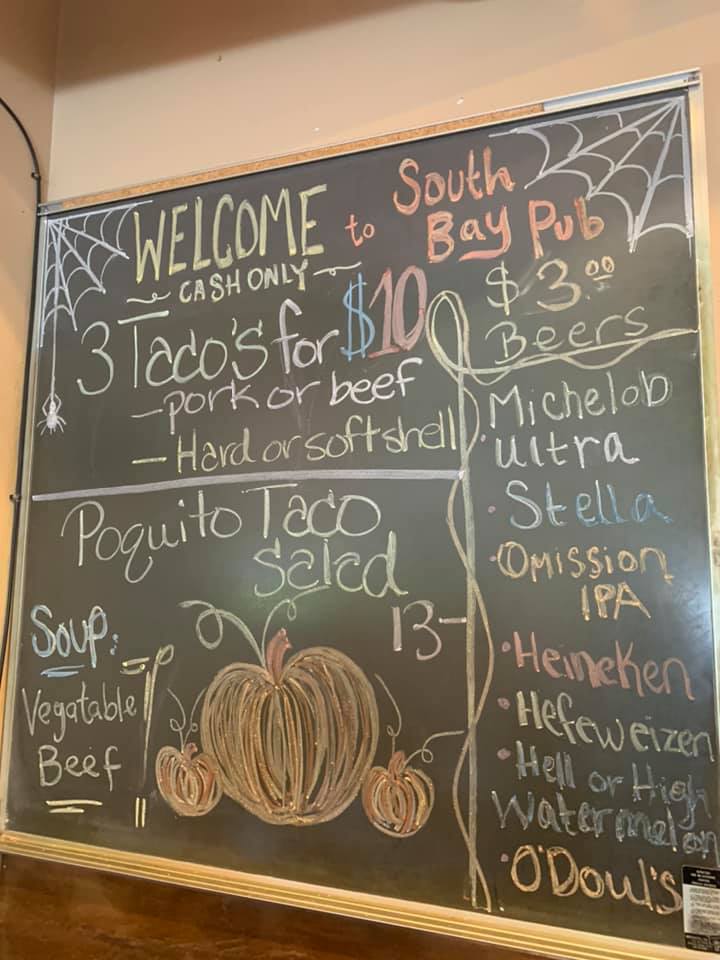 WELCOME to South Bay Pub
CASH ONLY
3 Taco's for $10
- pork or beef
- Hard or soft shell
Poquito Taco
Salad
13-
Soup:
Vegatable
Beef
$3.00
Beers
Michelob
ultra
• Stella
• Omission
IPA
• Heineken
• Hefeweizen
• Hell or High
Watermelon
• O'Doul's